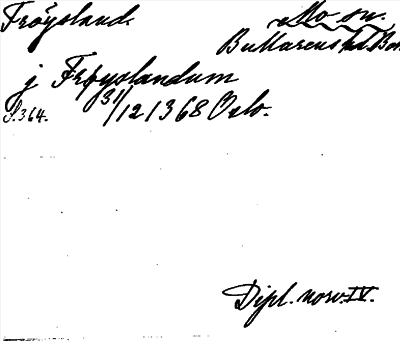 Fröysland.
Mo sn.
Bullarens hd. Boh.
j Frøyslandum
S. 364.
31/12 1368 Oslo.
Dipl. norv. IV.